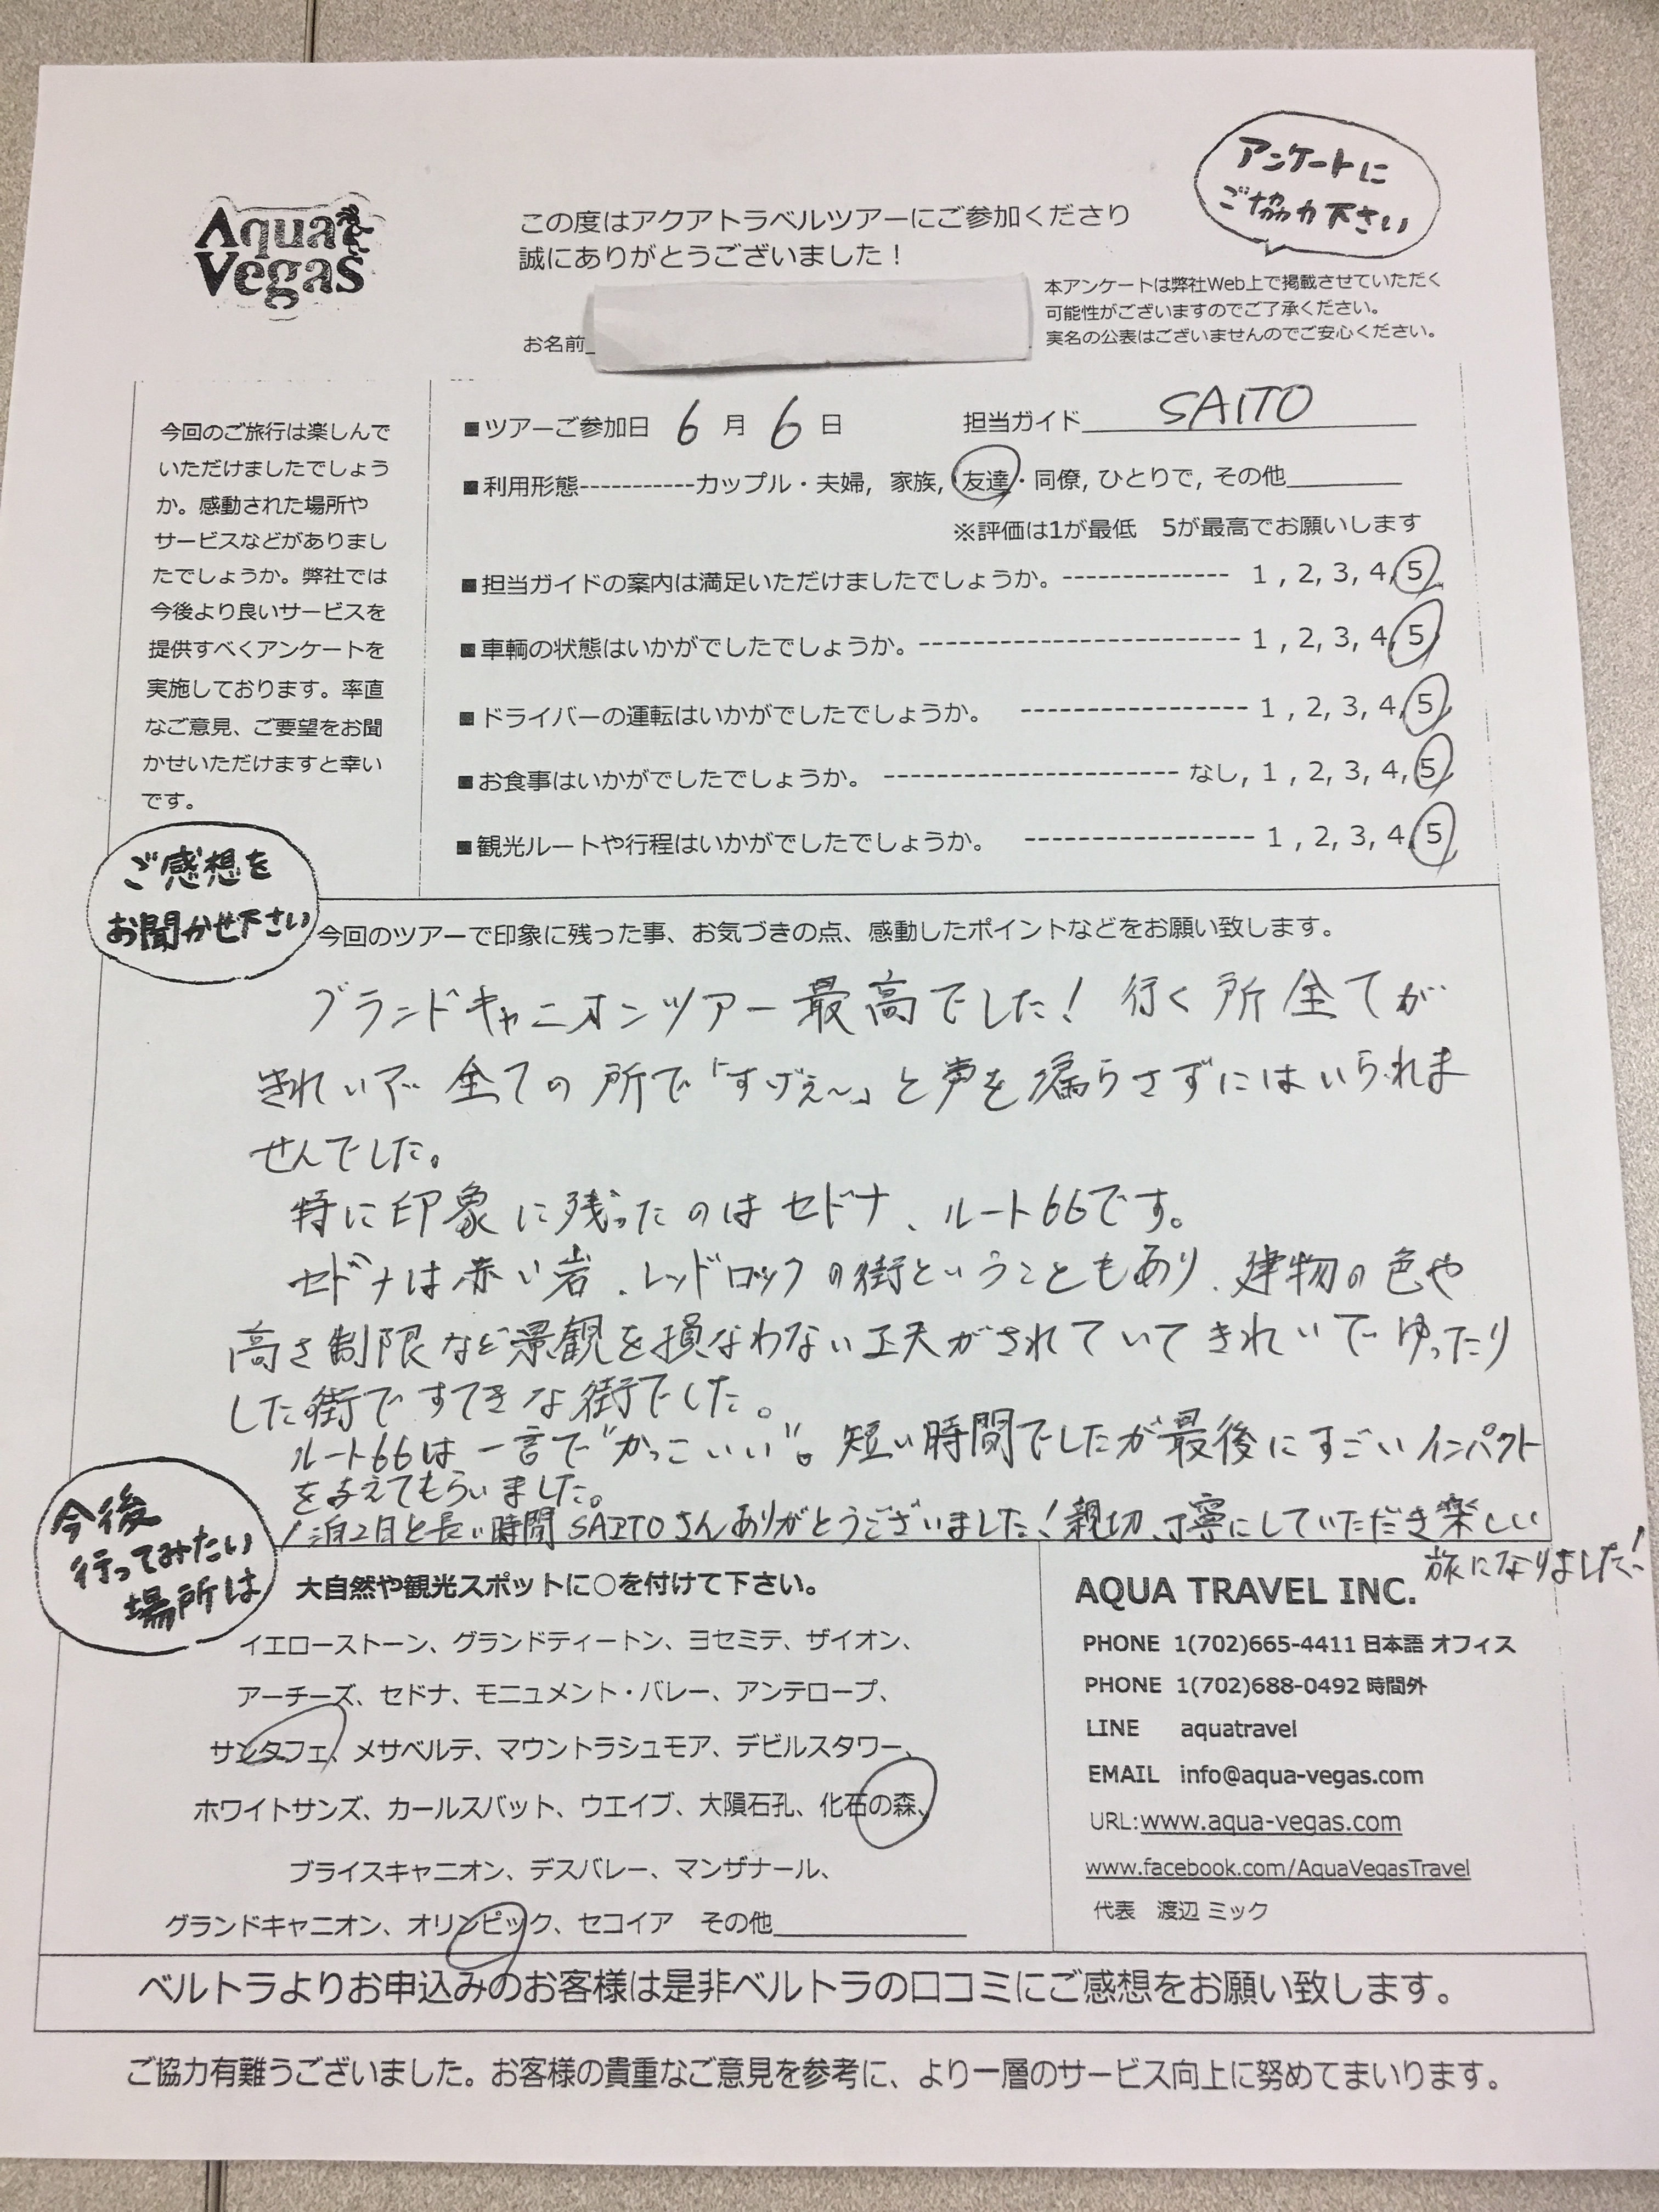 Aqua
Vegas
この度はアクアトラベルツアーにご参加くださり
誠にありがとうございました！
アンケートに
ご協力下さい
本アンケートは弊社Web上で掲載させていただく
可能性がございますのでご了承ください。
実名の公表はございませんのでご安心ください。
お名前
今回のご旅行は楽しんで
いただけましたでしょう
か。感動された場所や
サービスなどがありまし
たでしょうか。弊社では
今後より良いサービスを
提供すべくアンケートを
実施しております。率直
なご意見、ご要望をお聞
かせいただけますと幸い
です。
■ツアーご参加日 6 月 6 日 担当ガイド SAITO
■利用形態-----------カップル・夫婦, 家族, 友達・同僚, ひとりで, その他
※評価は1が最低 5が最高でお願いします
■担当ガイドの案内は満足いただけましたでしょうか。-------------- 1 , 2, 3, 4, 5
■車輌の状態はいかがでしたでしょうか。----------------------- 1 , 2, 3, 4, 5
■ドライバーの運転はいかがでしたでしょうか。 ---------------- 1 , 2, 3, 4, 5
■お食事はいかがでしたでしょうか。 --------------------- なし, 1 , 2, 3, 4, 5
■観光ルートや行程はいかがでしたでしょうか。 ---------------- 1 , 2, 3, 4, 5
ご感想を
お聞かせ下さい
今回のツアーで印象に残った事、お気づきの点、感動したポイントなどをお願い致します。
グランドキャニオンツアー最高でした！ 行く所全てが
きれいで 全ての所で「すげぇ〜」と声を漏らさずにはいられま
せんでした。
特に印象に残ったのはセドナ、ルート66です。
セドナは赤い岩、レッドロックの街ということもあり、建物の色や
高さ制限など景観を損なわない工夫がされていてきれいでゆったり
した街ですてきな街でした。
ルート66は一言で"かっこいい"。短い時間でしたが最後にすごいインパクト
を与えてもらいました。
1泊2日と長い時間 SAITOさんありがとうございました！親切、丁寧にしていただき楽しい
旅になりました！
今後
行ってみたい
場所は
大自然や観光スポットに○を付けて下さい。
イエローストーン、グランドティートン、ヨセミテ、ザイオン、
アーチーズ、セドナ、モニュメント・バレー、アンテロープ、
サンタフェ、メサベルテ、マウントラシュモア、デビルスタワー、
ホワイトサンズ、カールスバット、ウエイブ、大隕石孔、化石の森、
ブライスキャニオン、デスバレー、マンザナール、
グランドキャニオン、オリンピック、セコイア その他
AQUA TRAVEL INC.
PHONE 1(702)665-4411 日本語 オフィス
PHONE 1(702)688-0492 時間外
LINE aquatravel
EMAIL info@aqua-vegas.com
URL:www.aqua-vegas.com
www.facebook.com/AquaVegasTravel
代表 渡辺 ミック
ベルトラよりお申込みのお客様は是非ベルトラの口コミにご感想をお願い致します。
ご協力有難うございました。お客様の貴重なご意見を参考に、より一層のサービス向上に努めてまいります。